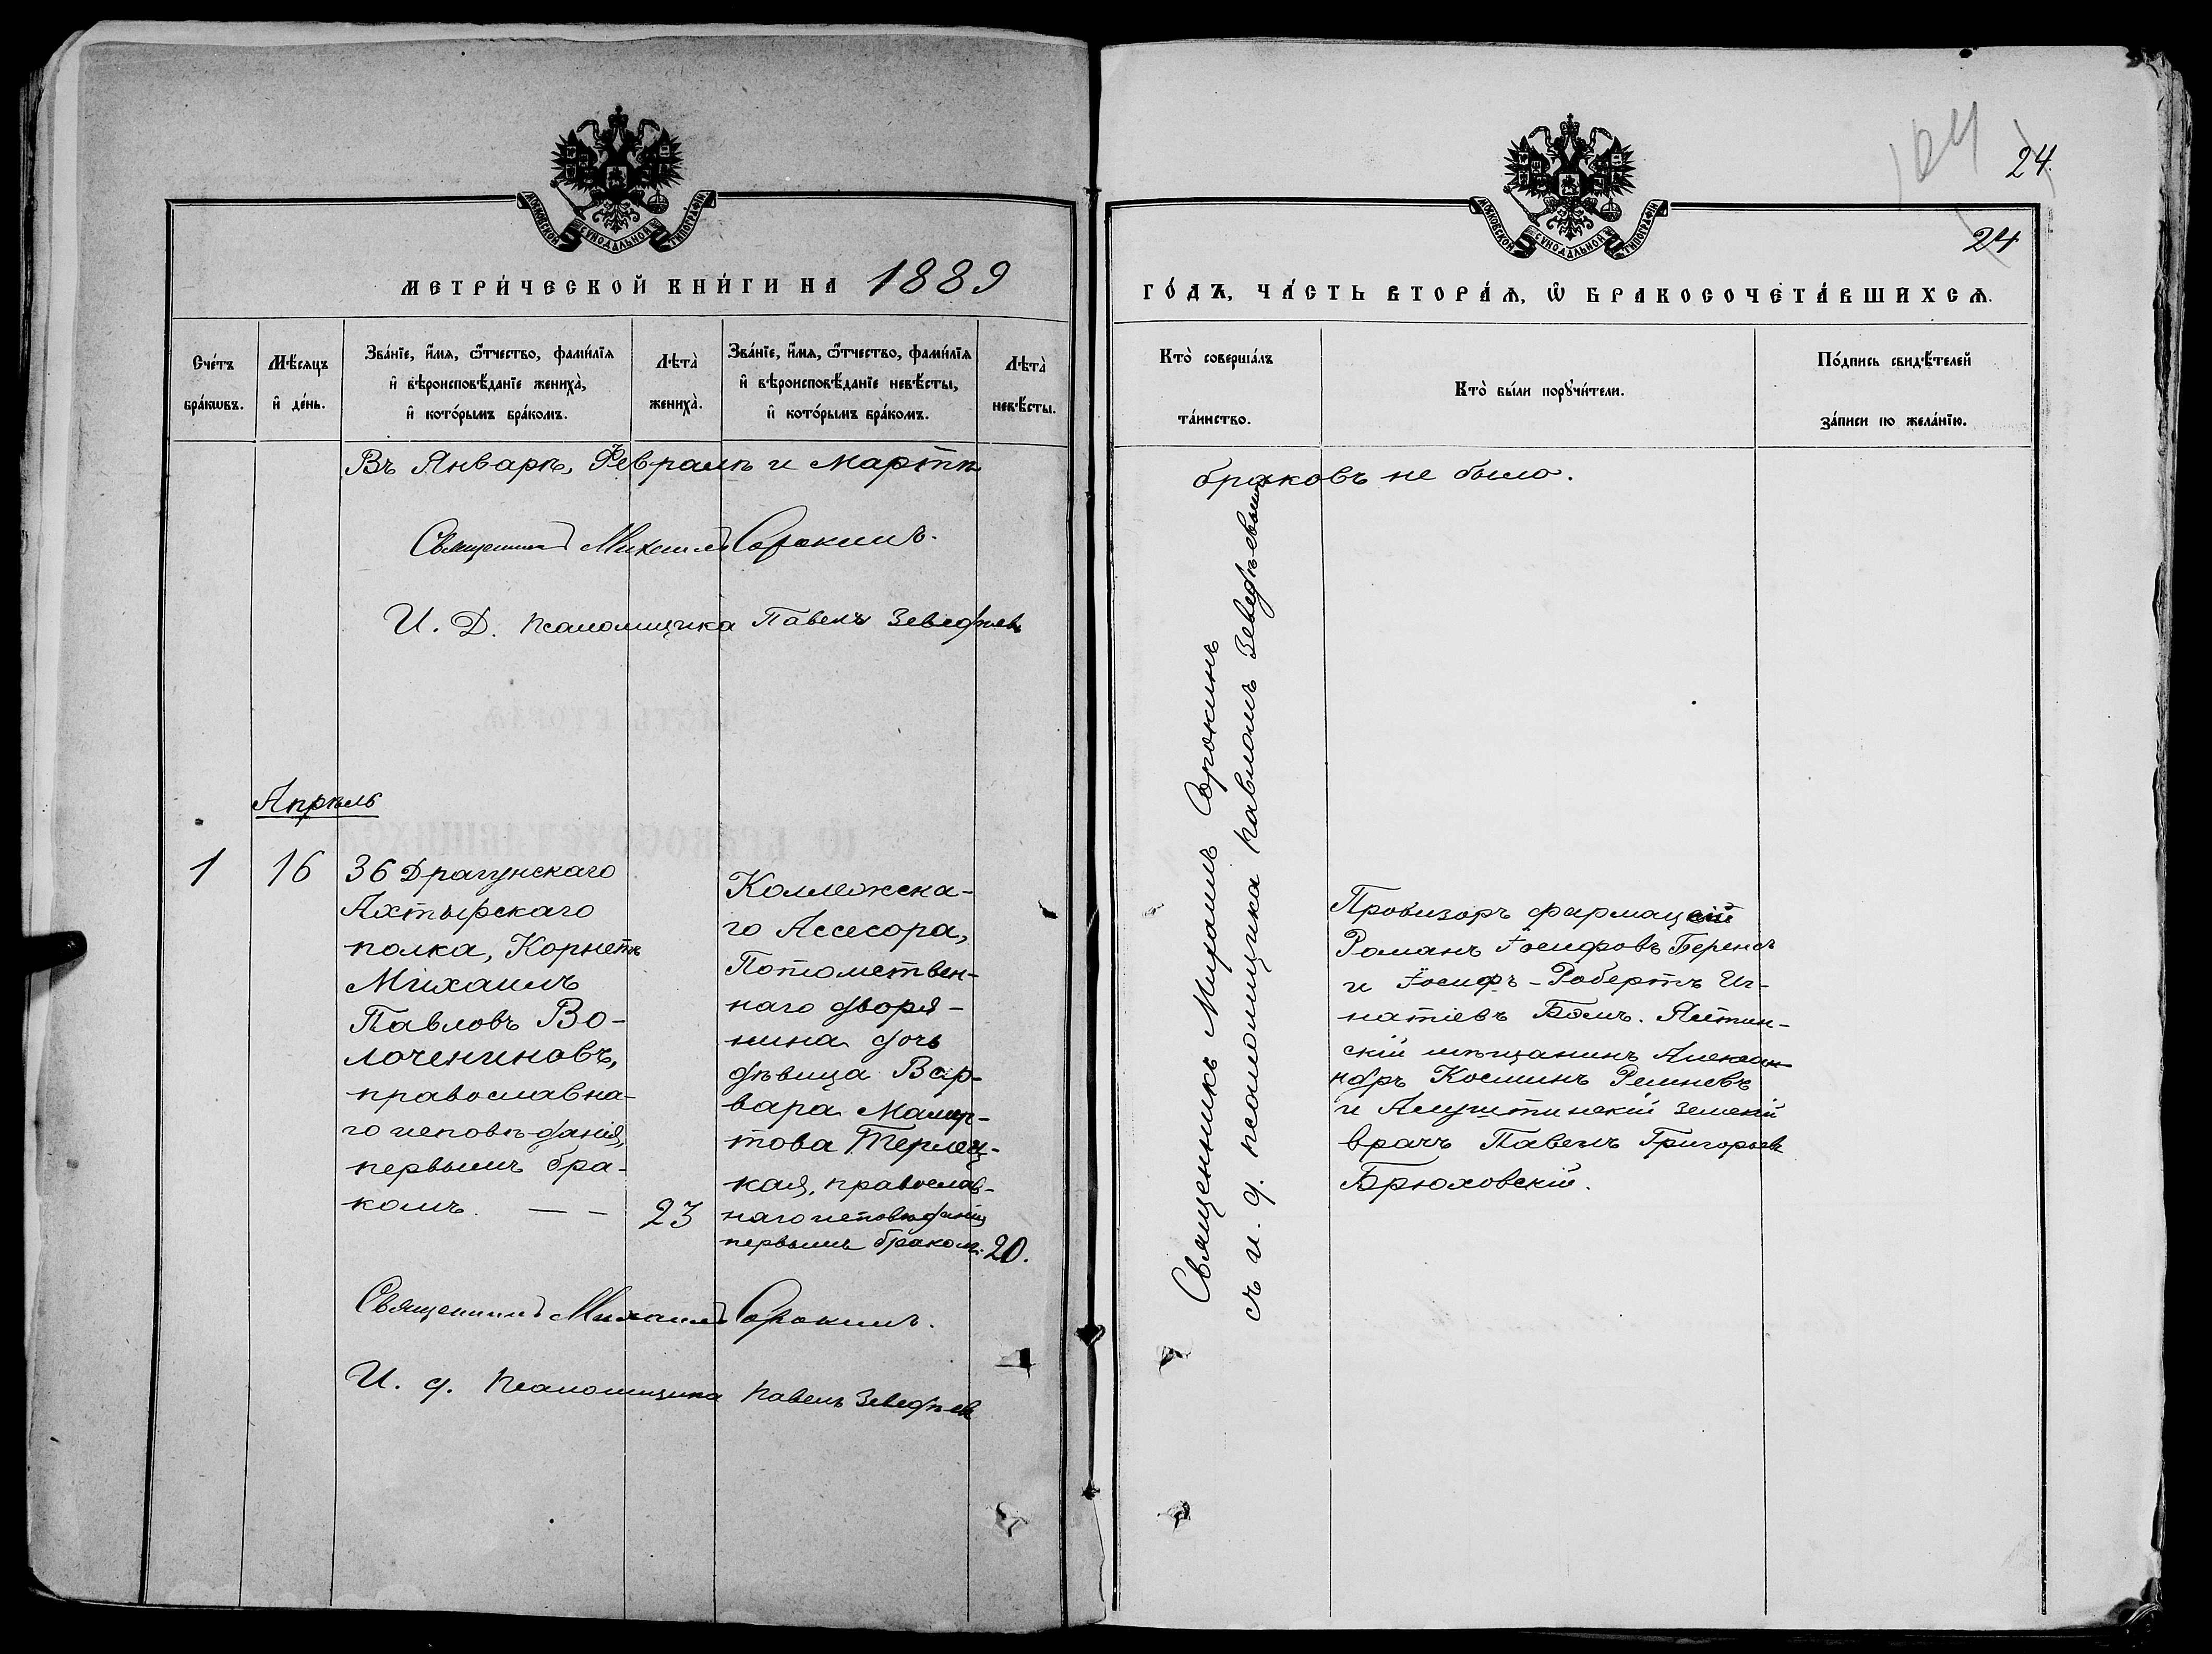 МОСКОВСКОЙ СУНОДАЛЬНОЙ ТИПОГРАФІИ
МЕТРИ́ЧЕСКОЙ КНИ́ГИ НА 1889
Сче́тъ бра́кѡвъ.
Мѣ́сяцъ и҆ де́нь.
Зва́нїе, и҆́мѧ, ѻ҆́тчество, фами́лїѧ
и҆ вѣроисповѣ́данїе жениха̀,
и҆ кото́рымъ бра́комъ.
Лѣта̀ жениха̀.
Зва́нїе, и҆́мѧ, ѻ҆́тчество, фами́лїѧ
и҆ вѣроисповѣ́данїе невѣ́сты,
и҆ кото́рымъ бра́комъ.
Лѣта̀ невѣ́сты.
Въ Январѣ, Февралѣ и Мартѣ
Священникъ Михаилъ Сорокинъ.
И. Д. псаломщика Павелъ Зеведѣев
Апрѣль
1
16
36 Драгунскаго
Ахтырскаго
полка, Корнетъ
Михаилъ
Павловъ Во-
лочениновъ,
православна-
го исповѣданія,
первымъ бра-
комъ. — —
23
Коллежска-
го Ассесора,
Потомствен-
наго дворя-
нина дочь
дѣвица Вар-
вара Мамер-
това Терлец-
кая, православ-
наго исповѣданія
первымъ бракомъ.
20.
Священникъ Михаилъ Сорокинъ.
И. д. псаломщика Павелъ Зеведѣев
24.
МОСКОВСКОЙ СУНОДАЛЬНОЙ ТИПОГРАФІИ
24
ГО́ДЪ, ЧА́СТЬ ВТОРА́Ѧ, Ѽ БРАКОСОЧЕТА́ВШИХСѦ.
Кто̀ соверша́лъ
та́инство.
Кто̀ бы́ли порꙋчи́тели.
По́дпись свидѣ́телей
за́писи по жела́нїю.
браковъ не было.
Священникъ Михаилъ Сорокинъ
съ и. д. псаломщика Павломъ Зеведѣевымъ
Провизоръ фармаціи
Романъ Іосифовъ Беренсъ
и Іосифъ-Робертъ Иг-
натіевъ Бомъ. Ялтин-
скій мѣщанинъ Алексан-
ндръ Косминъ Ремневъ
и Алуштинскій земскій
врачъ Павелъ Григорьев
Брюховскій.